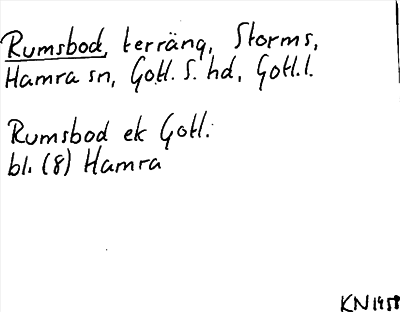 Rumsbod, terräng, Storms,
Hamra sn, Gotl. S. hd, Gotl. l.
Rumsbod ek Gotl.
bl. (8) Hamra
KN 1958